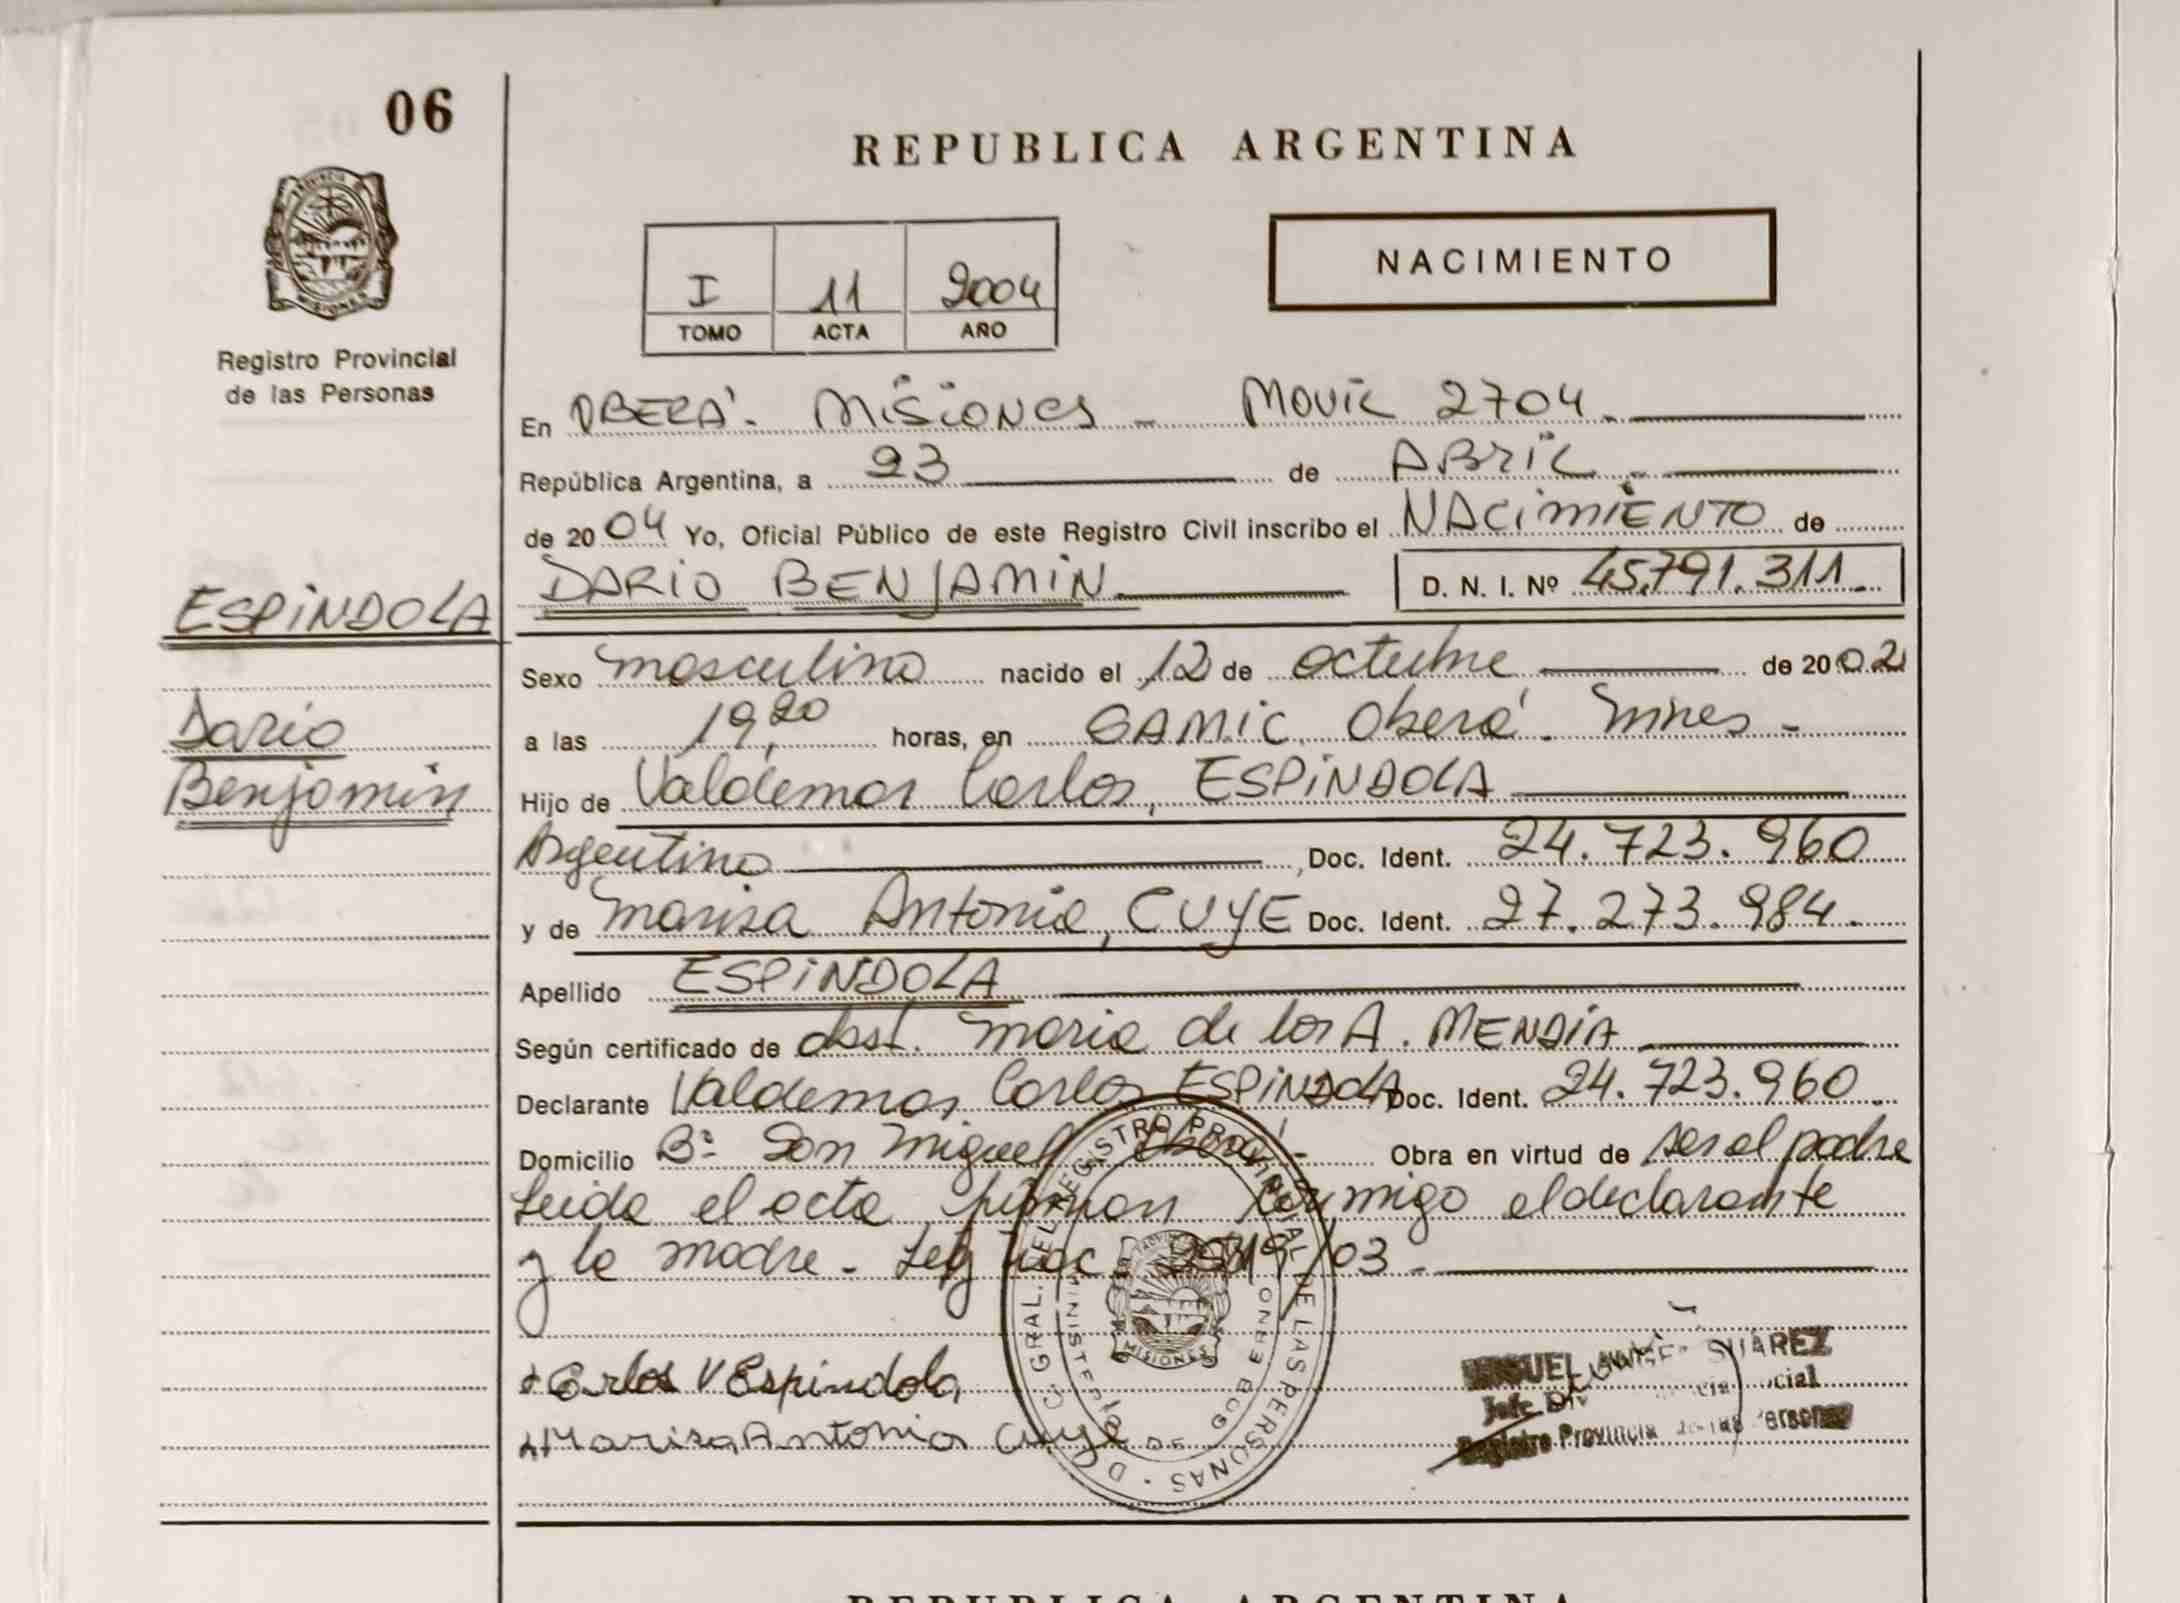 06
REPUBLICA ARGENTINA
PROVINCIA
MISIONES
Registro Provincial
de las Personas
I 11 2004
TOMO ACTA AÑO
NACIMIENTO
En OBERÁ - MISIONES - MOVIL 2704.
República Argentina, a 23 de ABRIL
de 2004 Yo, Oficial Público de este Registro Civil inscribo el NACIMIENTO de
ESPINDOLA DARIO BENJAMIN D. N. I. Nº 45.791.311
Sexo masculino nacido el 12 de octubre de 2002
Dario a las 19,20 horas, en SAMIC. Oberá - Mnes -
Benjamin Hijo de Valdemar Carlos, ESPINDOLA
Argentino, Doc. Ident. 24.723.960
y de Marisa Antonia, CUYE Doc. Ident. 27.273.984.
Apellido ESPINDOLA
Según certificado de obst. Maria de los A. MENDIA
Declarante Valdemar Carlos ESPINDOLA Doc. Ident. 24.723.960.
Domicilio Bº San Miguel Oberá - Obra en virtud de ser el padre
Leida el acta firman conmigo el declarante
y la madre - Leg /03 -
Carlos V Espindola
Marisa Antonia Cuye
GRAL. DEL REGISTRO PROVINCIAL DE LAS PERSONAS
MINISTERIO DE GOBIERNO
MISIONES
MIGUEL SUAREZ
Jefe Div
Registro Provincial de las Personas
REPUBLICA ARGENTINA